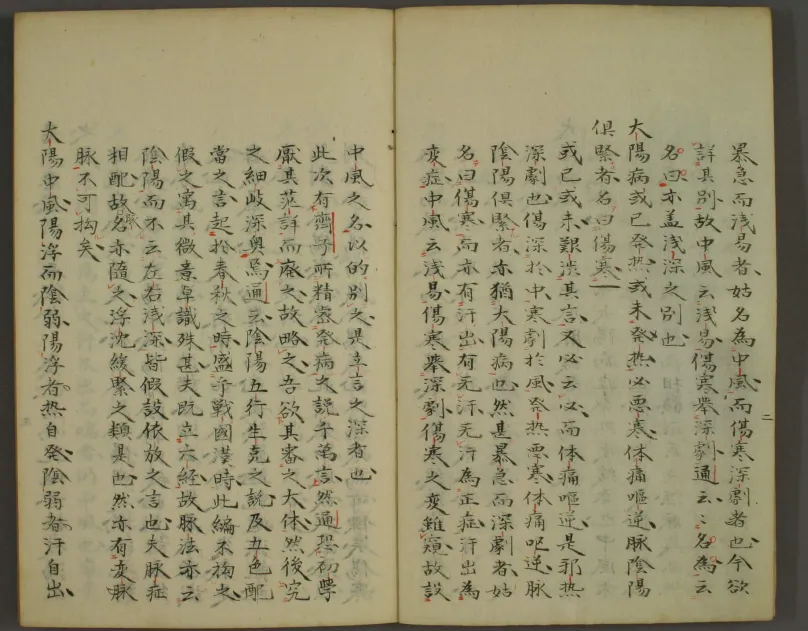 暴急而浅易者姑名為中風而傷寒深劇者也今欲
詳其別故中風云浅易傷寒擧深劇通云々名為云
名曰亦盖浅深之別也
太陽病或已発热或未発热必悪寒体痛嘔逆脉陰陽
俱緊者名曰傷寒
或已或未艱渋其言又必云必而体痛嘔逆是邪热
深劇也傷深於中寒劇於風発热悪寒体痛呕逆脉
陰陽俱緊者亦猶大陽病也然甚暴急而深劇者姑
名曰傷寒而亦有汗出有无汗无汗為正症汗出為
変症中風云浅易傷寒擧深劇傷寒之変難窺故設
中風之名以的別之是主言之深者也
此次有齊子所精密発病之説千萬言然通恐初學
厭其 詳而廢之故略之吾欲其審之大体然後究
之細岐深奥焉通云陰陽五行生克之説及五色配
當之言起於春秋之時盛乎戰國漢時此編不拘之
假之寓其微意卓識殊甚夫既立六経故脉法亦云
陰陽而不云左右浅深皆假設依放之言也夫脉症
相配故名亦隨之浮沈緩緊之類是也然亦有変脉
脉不可拘矣
太陽中風陽浮而陰弱陽浮者热自発陰弱者汗自出
二